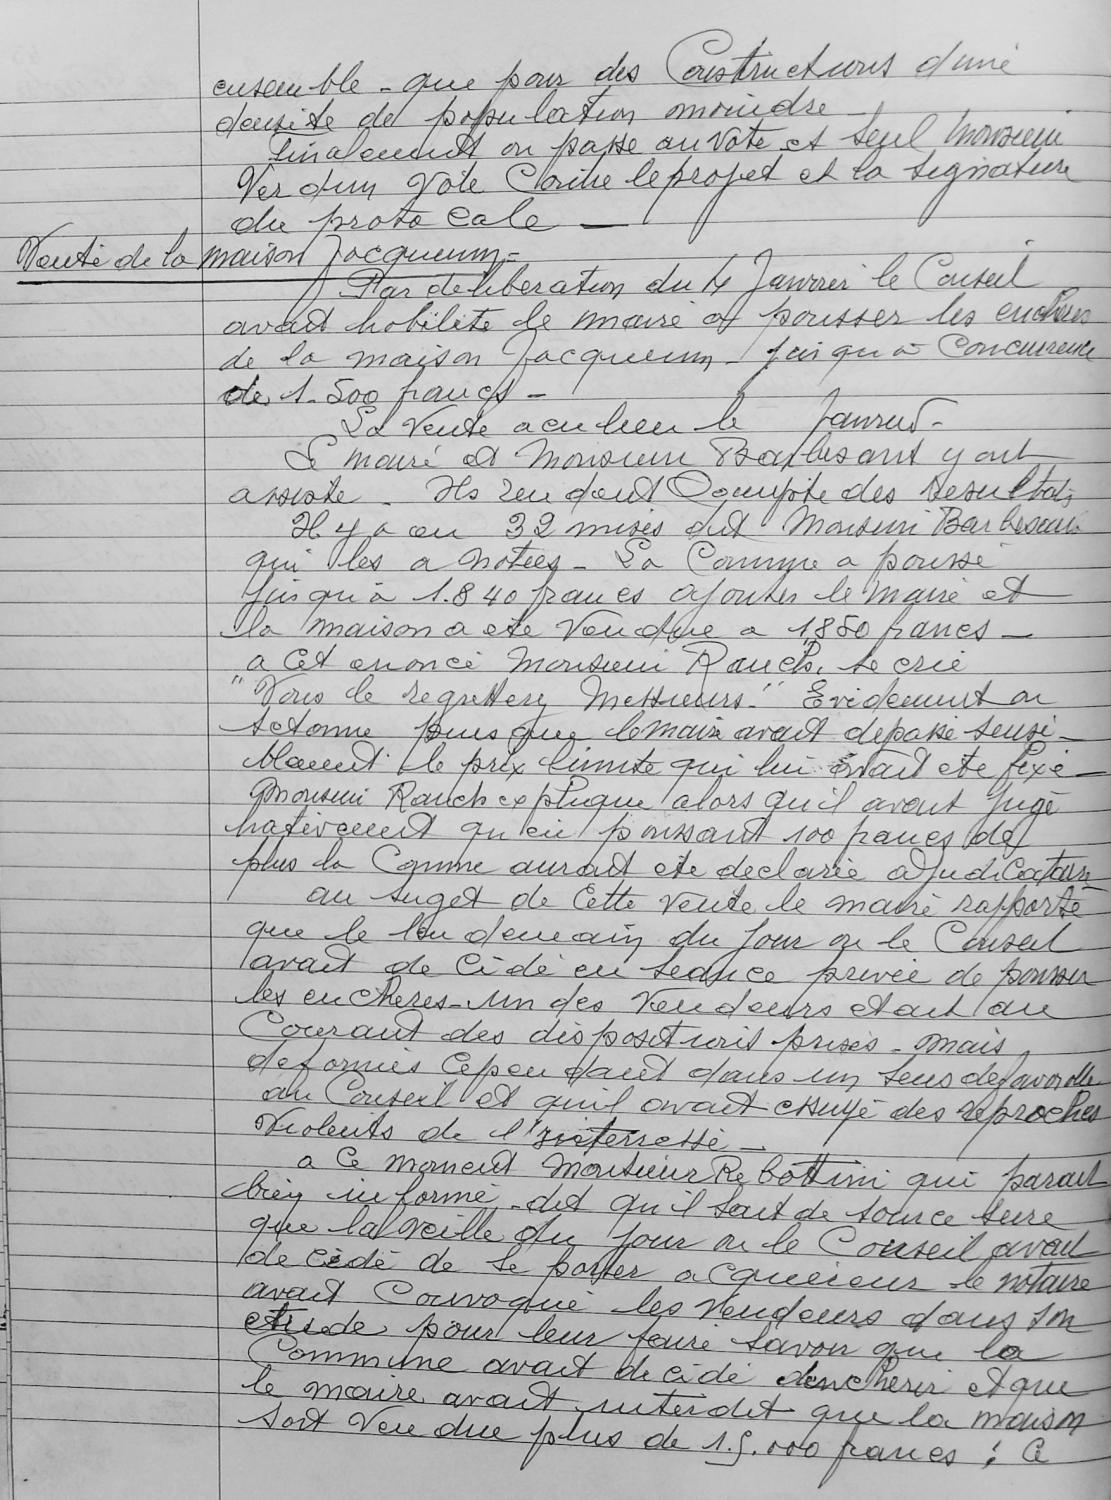 ensemble - que pour des Constructions d'une
densité de population moindre -
Finalement on passe au vote et seul Monsieur
Verdun vote Contre le projet et la signature
du protocole -
Vente de la maison Jacquemin -
Par deliberation du 4 Janvier le Conseil
avait habilité le maire a pousser les enchères
de la maison Jacquemin - jusqu'à Concurrence
de 1.500 francs -
La Vente a eu lieu le Janvier -
Le maire et Monsieur Barbesant y ont
assisté - Ils rendent Compte des resultats
Il y a eu 32 mises dit Monsieur Barbesant
qui les a notées - La Commune a poussé
jusqu'à 1.840 francs ajoute le maire et
la maison a été Vendue a 1850 francs -
a cet enoncé Monsieur Rauch se crie
"Vous le regrettez Messieurs." Evidement on
setonne puisque le maire avait depassé sensi-
blement le prix limite qui lui avait ete fixé -
Monsieur Rauch explique alors qu'il avait jugé
hativement qu'en poussant 100 francs de
plus la Comme aurait ete declarée adjudicataire
au suget de Cette vente le maire rapporte
que le lendemain du jour ou le Conseil
avait decidé en seance privée de pousser
les encheres - un des Vendeurs etait au
Courant des dispositions prises - mais
deformées Cependant dans un sens defavorable
au Conseil et qu'il avait essuyé des reproches
Violents de l'interressé -
a Ce moment Monsieur Rebottini qui parait
bien informé - dit qu'il sait de source sure
que la veille du jour ou le Conseil avait
decidé de se porter acquereur le notaire
avait Convoqué les Vendeurs dans son
etude pour leur faire savoir que la
Commune avait decidé d'encherir et que
le maire avait interdit que la maison
soit Vendue plus de 1.5.000 francs ; Ce